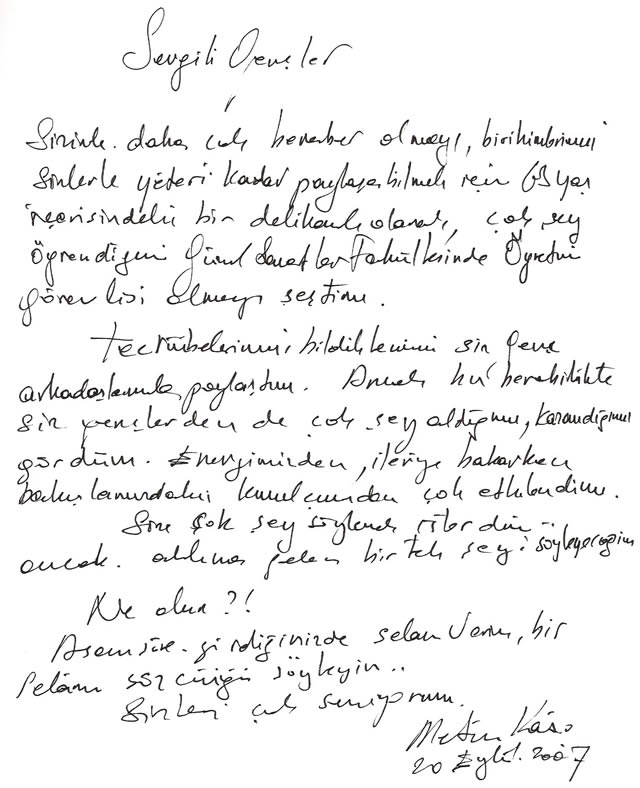 Sevgili Gençler
Sizinle daha çok beraber olmayı, birikimlerimi
sizlerle yeteri kadar paylaşabilmek için 63 yaş
içerisindeki bir delikanlı olarak, çok şey
öğrendiğim Güzel Sanatlar Fakültesinde Öğretim
görevlisi olmayı seçtim.
Tecrübelerimi, bildiklerimi siz genç
arkadaşlarımla paylaştım. Ancak bu beraberlikte
siz gençlerden de çok şey aldığımı, kazandığımı
gördüm. Enerjinizden, ileriye bakarken
bakışlarınızdaki çok etkilendim.
Size çok şey söylemek isterdim..
ancak. aklıma gelen bir tek şeyi söyleyeceğim
Ne olur?!
Asansöre girdiğinizde selam verin, bir
selam sözcüğü söyleyin..
Sizleri çok seviyorum.
Metin
20 Eylül. 2007